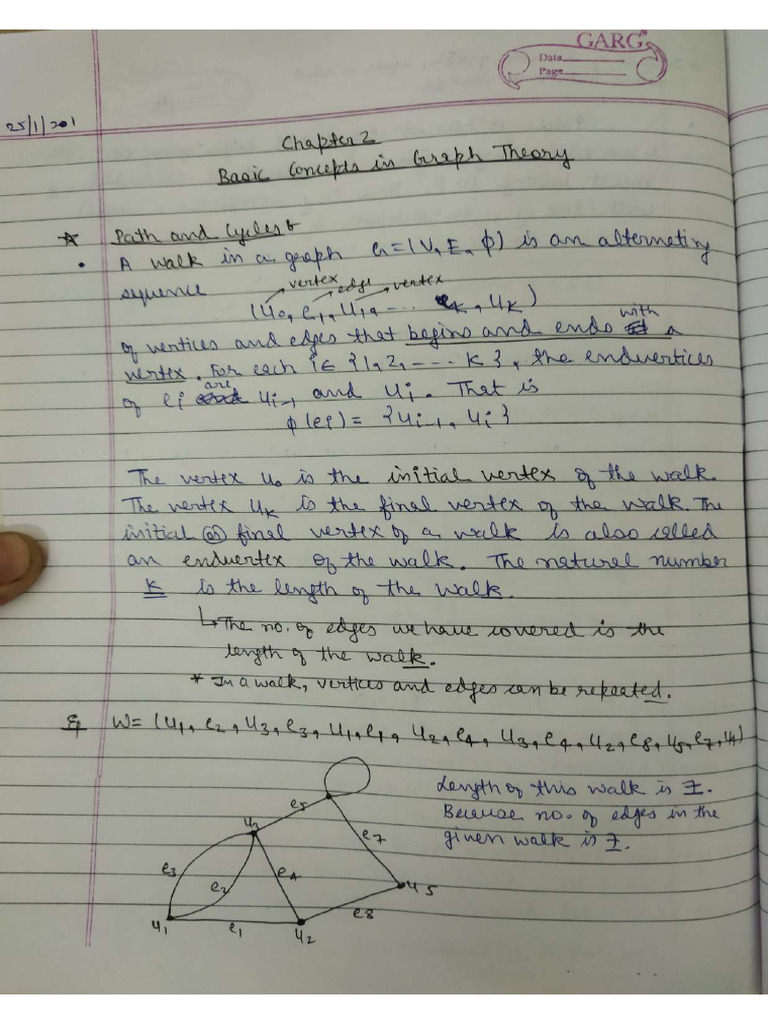 GARG
Date
Page
25/1/201
Chapter 2
Basic Concepts in Graph Theory
☆ Path and Cycles
• A walk in a graph G=(V, E, φ) is an alternating
vertex edge vertex
sequence
(u0, e1, u1, ... ek, uk)
of vertices and edges that begins and ends with a
vertex. For each i∈ {1, 2, .... K}, the endvertices
of ei are ui-1 and ui. That is
φ(ei) = {ui-1, ui}
The vertex u0 is the initial vertex of the walk.
The vertex uK is the final vertex of the walk. The
initial or final vertex of a walk is also called
an endvertex of the walk. The natural number
K is the length of the walk.
↳ The no. of edges we have covered is the
length of the walk.
* In a walk, vertices and edges can be repeated.
Eg W= (u1, e2, u3, e3, u1, e1, u2, e4, u3, e4, u2, e8, u5, e7, u4)
Length of this walk is 7.
Because no. of edges in the
given walk is 7.
e5
u3
e7
e3
e2
e4
u5
e8
u1
e1
u2